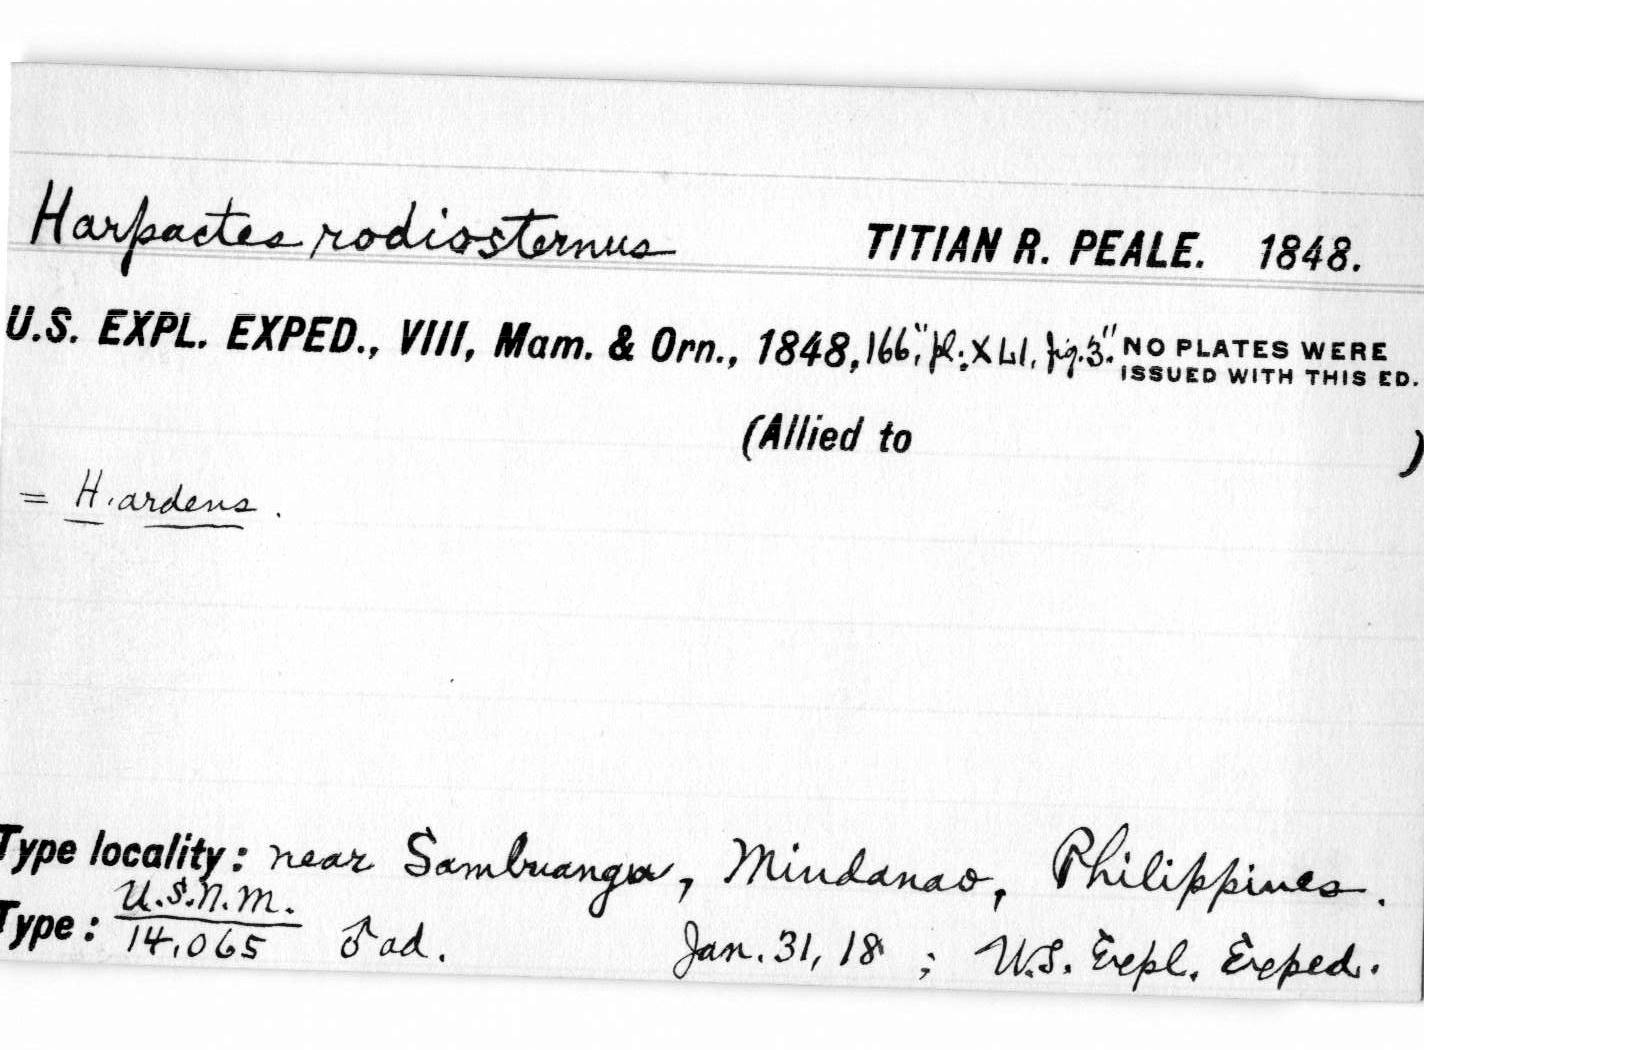 Harpactes rodiosternus TITIAN R. PEALE. 1848.
U.S. EXPL. EXPED., VIII, Mam. & Orn., 1848, 166," pl. XLI, fig. 3". NO PLATES WERE
ISSUED WITH THIS ED.
(Allied to )
= H. ardens.
Type locality: near Sambuanga, Mindanao, Philippines.
Type: U.S.N.M.
14,065 ♂ ad. Jan. 31, 18 ; U.S. Expl. Exped.